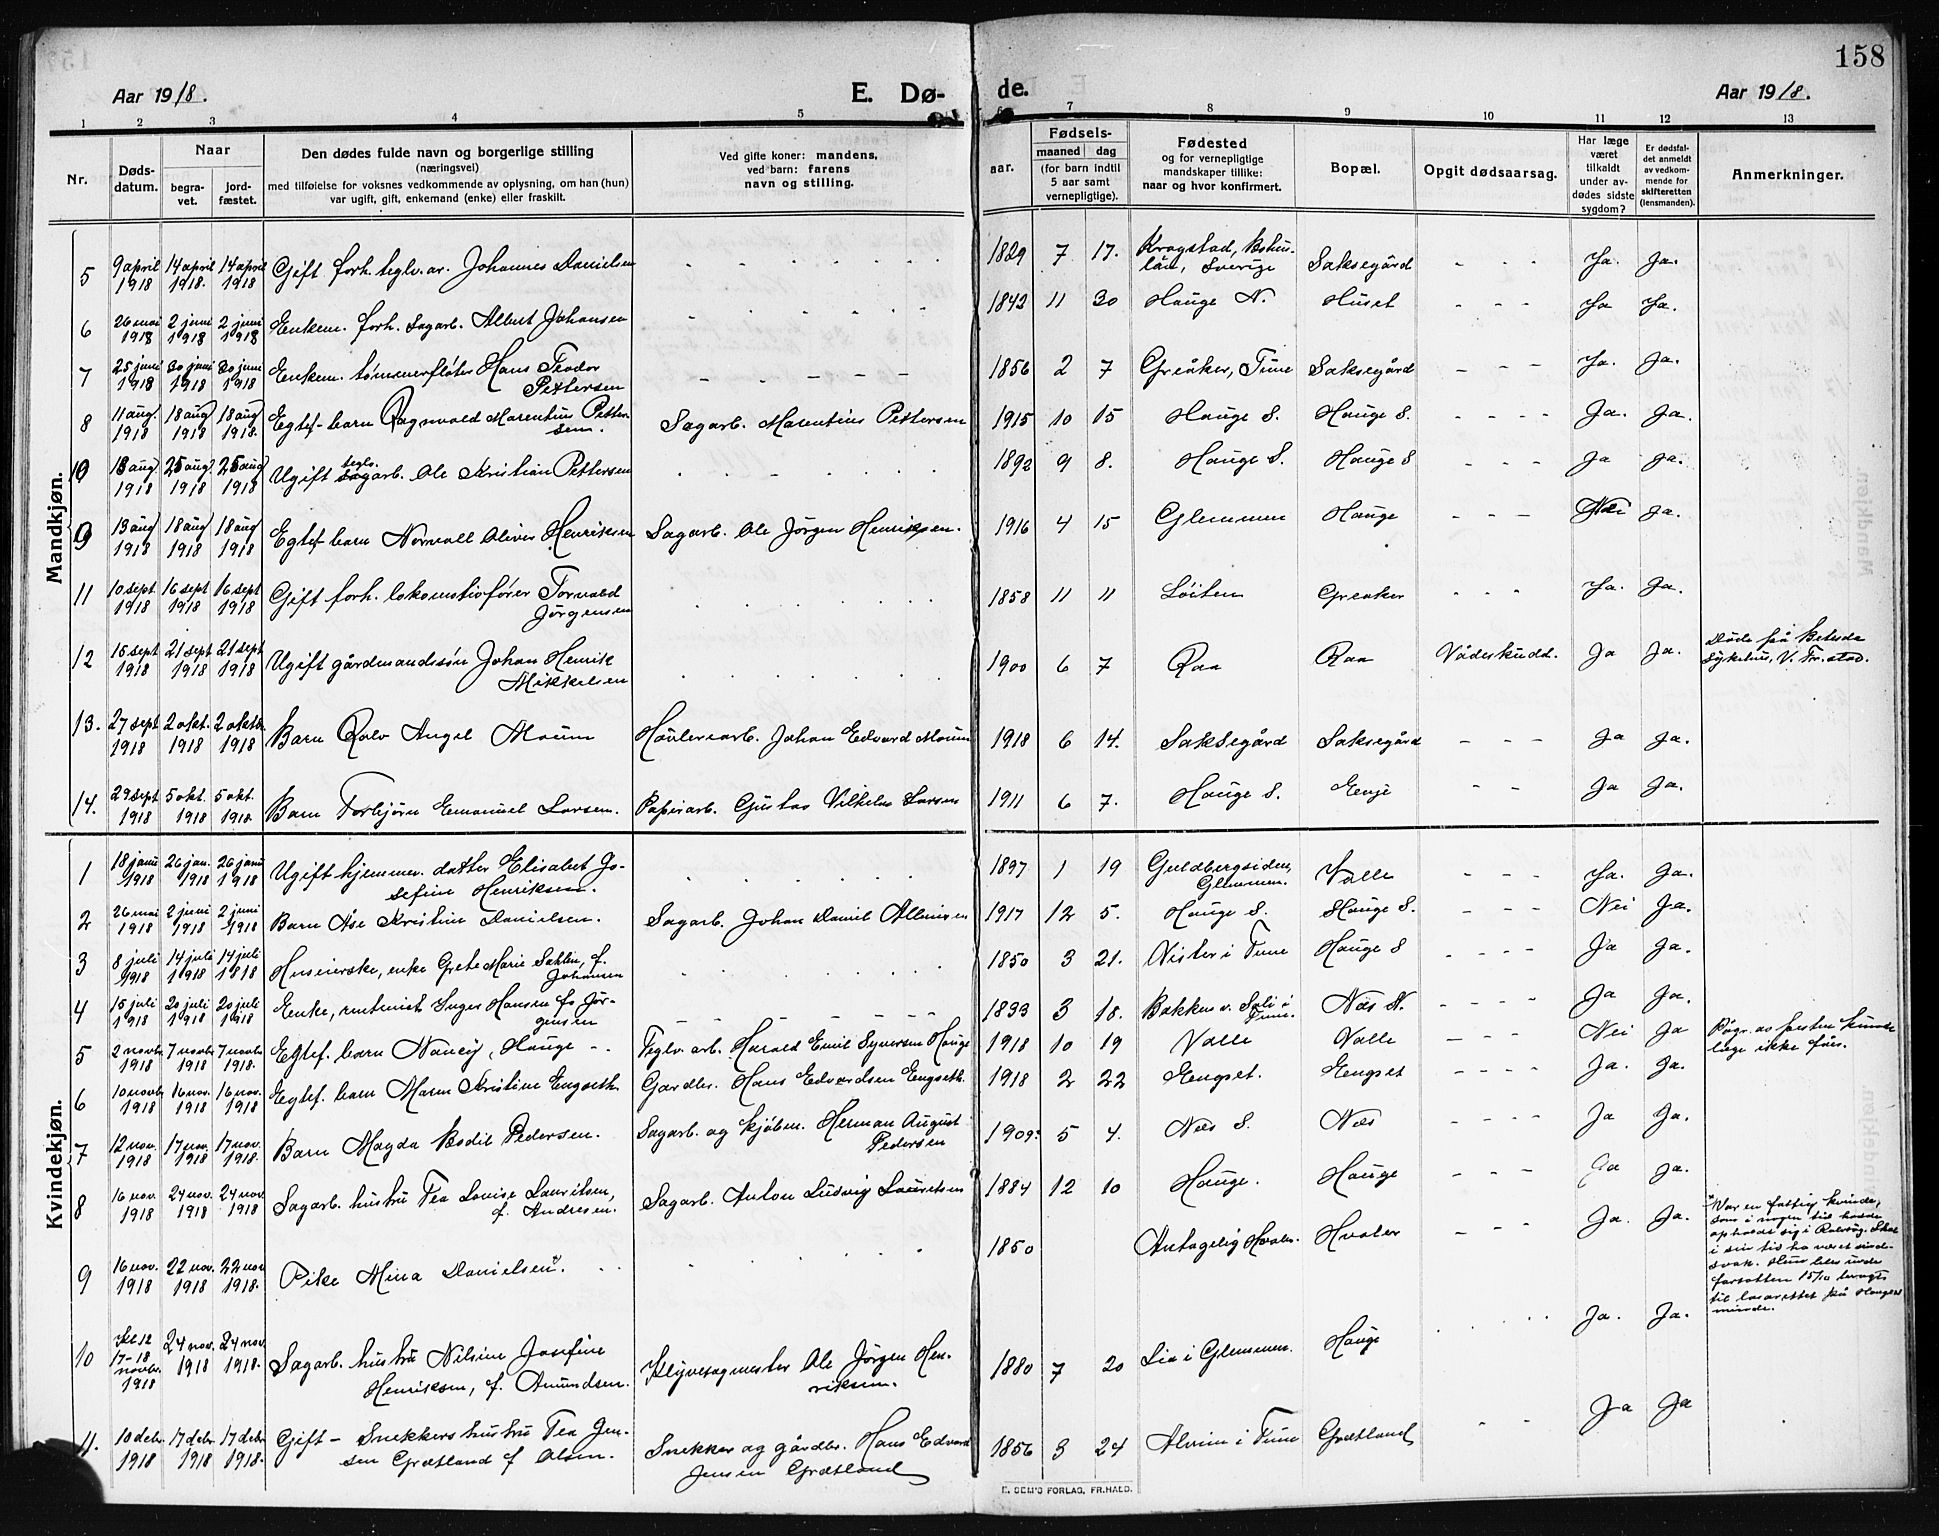 158
Aar 1918.
E. Dø-
de.
Aar 1918.
1 2 3 4 5 6 7 8 9 10 11 12 13
Nr.
Døds-
datum.
Naar
begra-
vet.
jord-
fæstet.
Den dødes fulde navn og borgerlige stilling
(næringsvei)
med tilføielse for voksnes vedkommende av oplysning, om han (hun)
var ugift, gift, enkemand (enke) eller fraskilt.
Ved gifte koner: mandens,
ved barn: farens
navn og stilling.
aar.
Fødsels-
maaned dag
(for barn indtil
5 aar samt
vernepligtige).
Fødested
og for vernepligtige
mandskaper tillike:
naar og hvor konfirmert.
Bopæl.
Opgit dødsaarsag.
Har læge
været
tilkaldt
under av-
dødes sidste
sygdom?
Er dødsfal-
det anmeldt
av vedkom-
mende for
skifteretten
(lensmanden).
Anmerkninger.
Mandkjøn.
5 9 april 1918 14 april 1918. 14 april 1918 Gift forh. teglv. ar. Johannes Danielsen 1829 7 17. Krogstad, Bohus-
län, Sverige Saksegård Ja. Ja.
6 26 mai 1918 2 juni 1918 2 juni 1918 Enkem. forh. Sagarb. Albert Johansen 1843 11 30 Hauge N. Huset Ja Ja.
7 25 juni 1918 30 juni 1918 30 juni 1918 Enkem. tømmerfløter Hans Teodor
Pettersen 1856 2 7 Greåker, Tune Saksegård Ja. Ja.
8 11 aug. 1918 18 aug 1918 18 aug 1918. Egtef. barn Ragnvald Marentius Petter-
sen. Sagarb. Marentius Pettersen 1915 10 15 Hauge S. Hauge S. Ja. Ja.
10 18 aug. 1918 25 aug. 1918 25 aug 1918 Ugift teglv. arb. Ole Kristian Pettersen 1892 9 8. Hauge S. Hauge S Ja Ja.
9 13 aug 1918 18 aug 1918 18 aug 1918 Egtef. barn Norvall Oliver Henriksen Sagarb. Ole Jørgen Henriksen. 1916 4 15 Glemmen Hauge Nei Ja.
11 10 sept. 1918 16 sept 1918 16 sept 1918 Gift forh. lokomotivfører Torvald
Jørgensen 1858 11 11 Løiten Greaker Ja. Ja.
12 15 sept 1918 21 sept 1918 21 sept 1918 Ugift gårdmandssøn Johan Henrik
Mikkelsen 1900 6 7 Raa Raa Vådeskudd. Ja Ja. Døde på Betesda
Sykehus, V. Fr.stad.
13. 27 sept 1918 2 okt. 1918 2 oktbr 1918 Barn Rolv Angel Moum Høvleriarb. Johan Edvard Moum 1918 6 14. Saksegård Saksegård Ja Ja.
14. 29 sept 1918 5 okt. 1918 5 okt. 1918. Barn Torbjørn Emanuel Larsen. Papirarb. Gustav Vilhelm Larsen 1911 6 7. Hauge S. Enge Ja Ja.
Kvindekjøn.
1 18 janu 1918 26 jan. 1918 26 janu 1918 Ugift hjemmev. datter Elisabet Jo-
sefine Henriksen. 1897 1 19 Guldbergsiden,
Glemmen. Valle Ja. Ja.
2 26 mai 1918 2 juni 1918 2 juni 1918 Barn Åse Kristine Danielsen. Sagarb. Johan Daniel Albinsen 1917 12 5. Hauge S. Hauge S. Nei Ja.
3 8 juli 1918 14 juli 1918 14 juli 1918 Huseierske, enke Grete Marie f.
Johansen 1850 3 21. Nister i Tune Hauge S Ja Ja.
4 15 juli 1918 20 juli 1918 20 juli 1918 Enke, rentenist Inger Hansen f. Jør-
gensen 1833 3 18. Bakken v. Soli i
Tune. Næs N. Ja Ja.
5 2 novbr 1918 7 novbr 1918 7 novbr 1918. Egtef. barn Nancy, Hauge Teglv. arb. Harald Emil Syversen Hauge 1918 10 19 Valle Valle Nei Ja Pågr. av farsten kunde
læge ikke fåes.
6 10 novbr 1918 16 nov. 1918 16 nov. 1918 Egtef. barn Maren Kristine Engseth Gardbr. Hans Edvardsen Engseth. 1918 2 22 Hengset. Hengset Ja. Ja.
7 12 nov. 1918 17 nov. 1918 17 nov. 1918. Barn Magda Bodil Pedersen. Sagarb. og kjøbm. Herman August
Pedersen 1909. 5 4. Næs S. Næs Ja Ja.
8 16 nov. 1918 24 nov. 1918 24 nov. 1918 Sagarb. hustru Tea Lovise Lauritsen,
f. Andresen. Sagarb. Anton Ludvig Lauritsen 1884 12 10 Hauge. Hauge Ja Ja.
9 16 nov. 1918 22 nov. 1918 22 nov 1918. Pike Mina Danielsen. 1850 Antagelig Hvaler. Hvaler Ja. Ja. Var en fattig kvinde,
som i nogen tid hadde
opholdt sig i Rolvsøy. Skal
i sin tid ha været sind-
svak. Hun blev
15/11 bragt
til lasarettet på Hauges-
minde.
10 Kl. 12
17-18
novbr. 1918 24 nov. 1918 24 nov. 1918. Sagarb. hustru Nilsine Josefine
Henriksen, f. Amundsen. Klyvesagmester Ole Jørgen Hen-
riksen. 1880 7 20 Lia i Glemmen. Hauge Ja. Ja.
11. 10 debr. 1918 17 debr 1918 17 debr 1918. Gift - Snekkers hustru Tea Jen-
sen Grætland f Olsen. Snekker og gårdbr. Hans Edvard
Jensen Grætland 1856 3 24 Alvim i Tune Grætland Ja Ja
E. SEM'S FORLAG, FR.HALD.